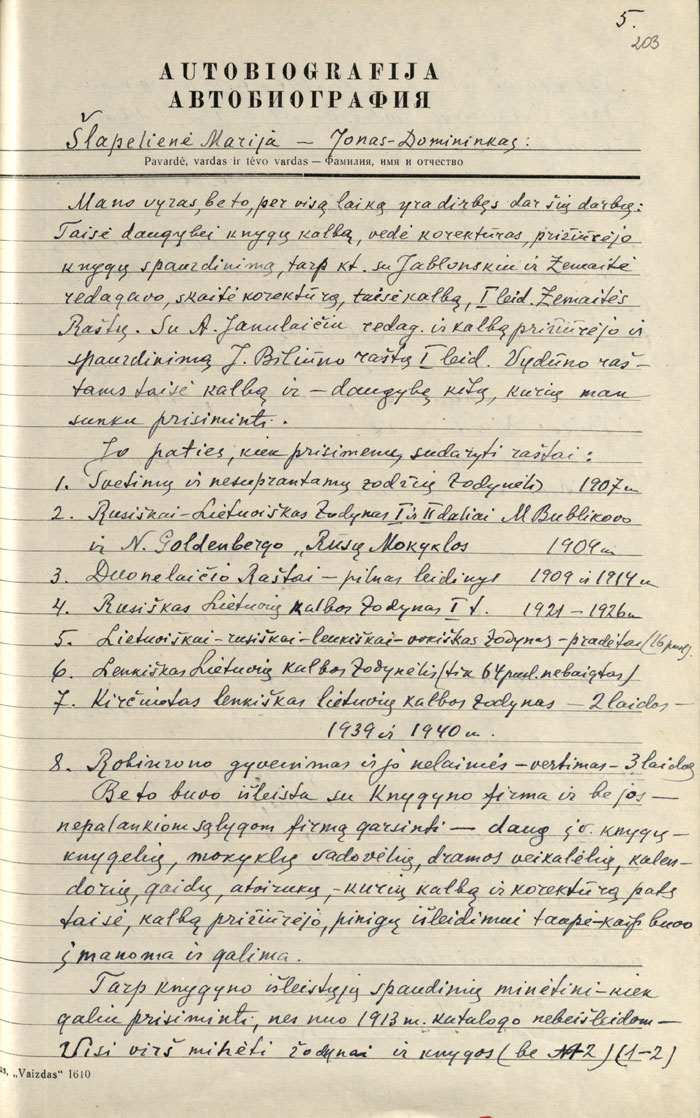 5.
203
AUTOBIOGRAFIJA
АВТОБИОГРАФИЯ
Šlapelienė Marija — Jonas-Domininkas:
Pavardė, vardas ir tėvo vardas — Фамилия, имя и отчество
Mano vyras, be to, per visą laiką yra dirbęs dar šių darbų:
Taisė daugybei knygų kalbą, vedė korektūras, prižiūrėjo
knygų spausdinimą, tarp kt. su Jablonskiu ir Žemaitė
redagavo, skaitė korektūrą, taisė kalbą, I leid. Žemaitės
Raštų. Su A. Janulaičiu redag. ir kalbą prižiūrėjo ir
spausdinimą J. Biliūno raštų I leid. Vydūno raš-
tams taisė kalbą ir — daugybę kitų, kurių man
sunku prisiminti.
Jo paties, kiek prisimenu, sudaryti raštai:
1. Svetimų ir nesuprantamų žodžių žodynėlis 1907 m
2. Rusiškai-Lietuviškas žodynas I ir II daliai M Bublikovo
ir N. Goldenbergo „Rusų Mokyklos 1909 m
3. Duonelaičio Raštai — pilnas leidinys 1909 ir 1914 m
4. Rusiškas Lietuvių kalbos žodynas I t. 1921 — 1926 m
5. Lietuviškai-rusiškai-lenkiškai-vokiškas žodynas — pradėtas /16 pusl.
6. Lenkiškas Lietuvių kalbos žodynėlis /tik 64 pusl. nebaigtas/
7. Kirčiuotas lenkiškas lietuvių kalbos žodynas — 2 laidos —
1939 ir 1940 m.
8. Robinzono gyvenimas ir jo nelaimės — vertimas — 3 laidos
Be to buvo išleista su Knygyno firma ir be jos —
nepalankiom sąlygom firmą garsinti — daug įv. knygų-
knygelių, mokyklų vadovėlių, dramos veikalėlių, kalen-
dorių, gaidų, atvirukų, - kurių kalbą ir korektūrą pats
taisė, kalbą prižiūrėjo, pinigų išleidimui taupė kaip buvo
įmanoma ir galima.
Tarp knygyno išleistųjų spaudinių minėtini — kiek
galiu prisiminti, nes nuo 1913 m. katalogo nebeišleidom —
Visi virš minėti žodynai ir knygos (be 2) (1-2)
„Vaizdas" 1610